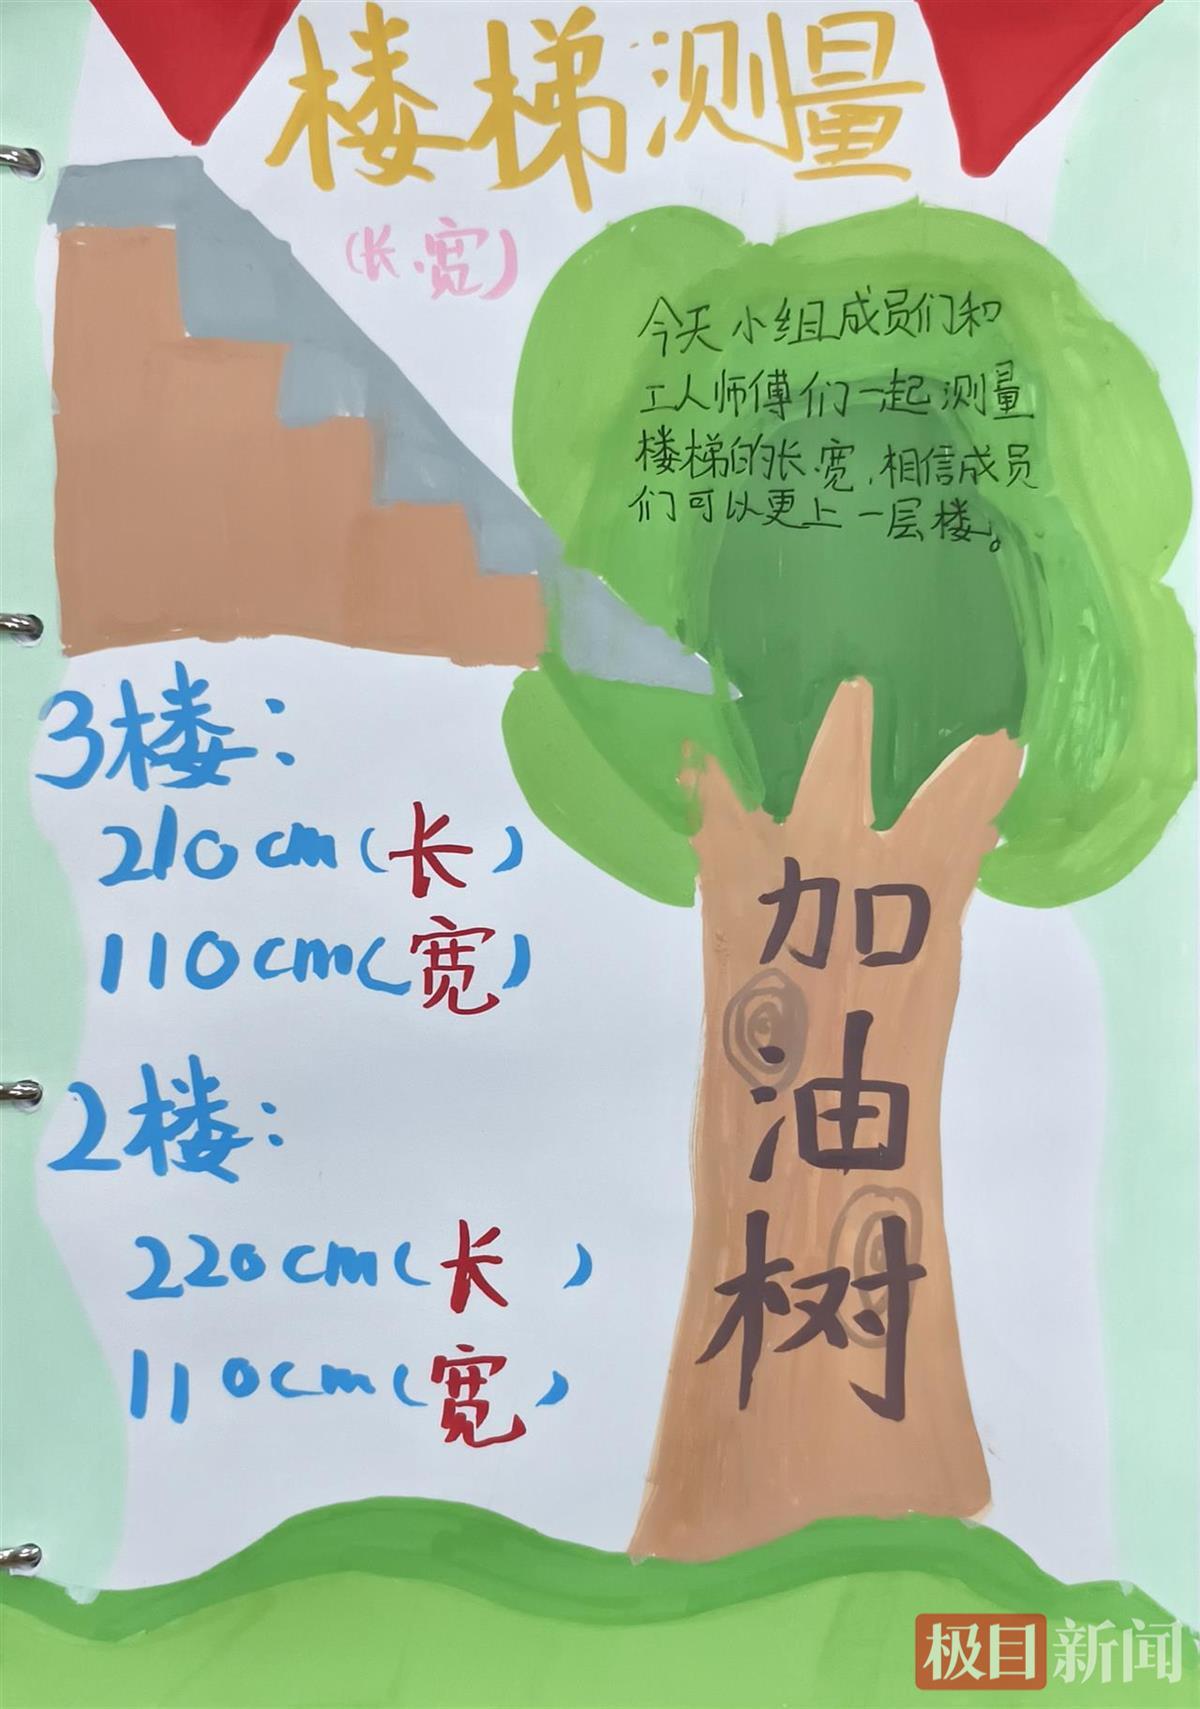 楼梯测量
(长.宽)
今天小组成员们和
工人师傅们一起测量
楼梯的长.宽,相信成员
们可以更上一层楼。
3楼:
210cm(长)
110cm(宽)
2楼:
220cm(长)
110cm(宽)
加
油
树
极目新闻